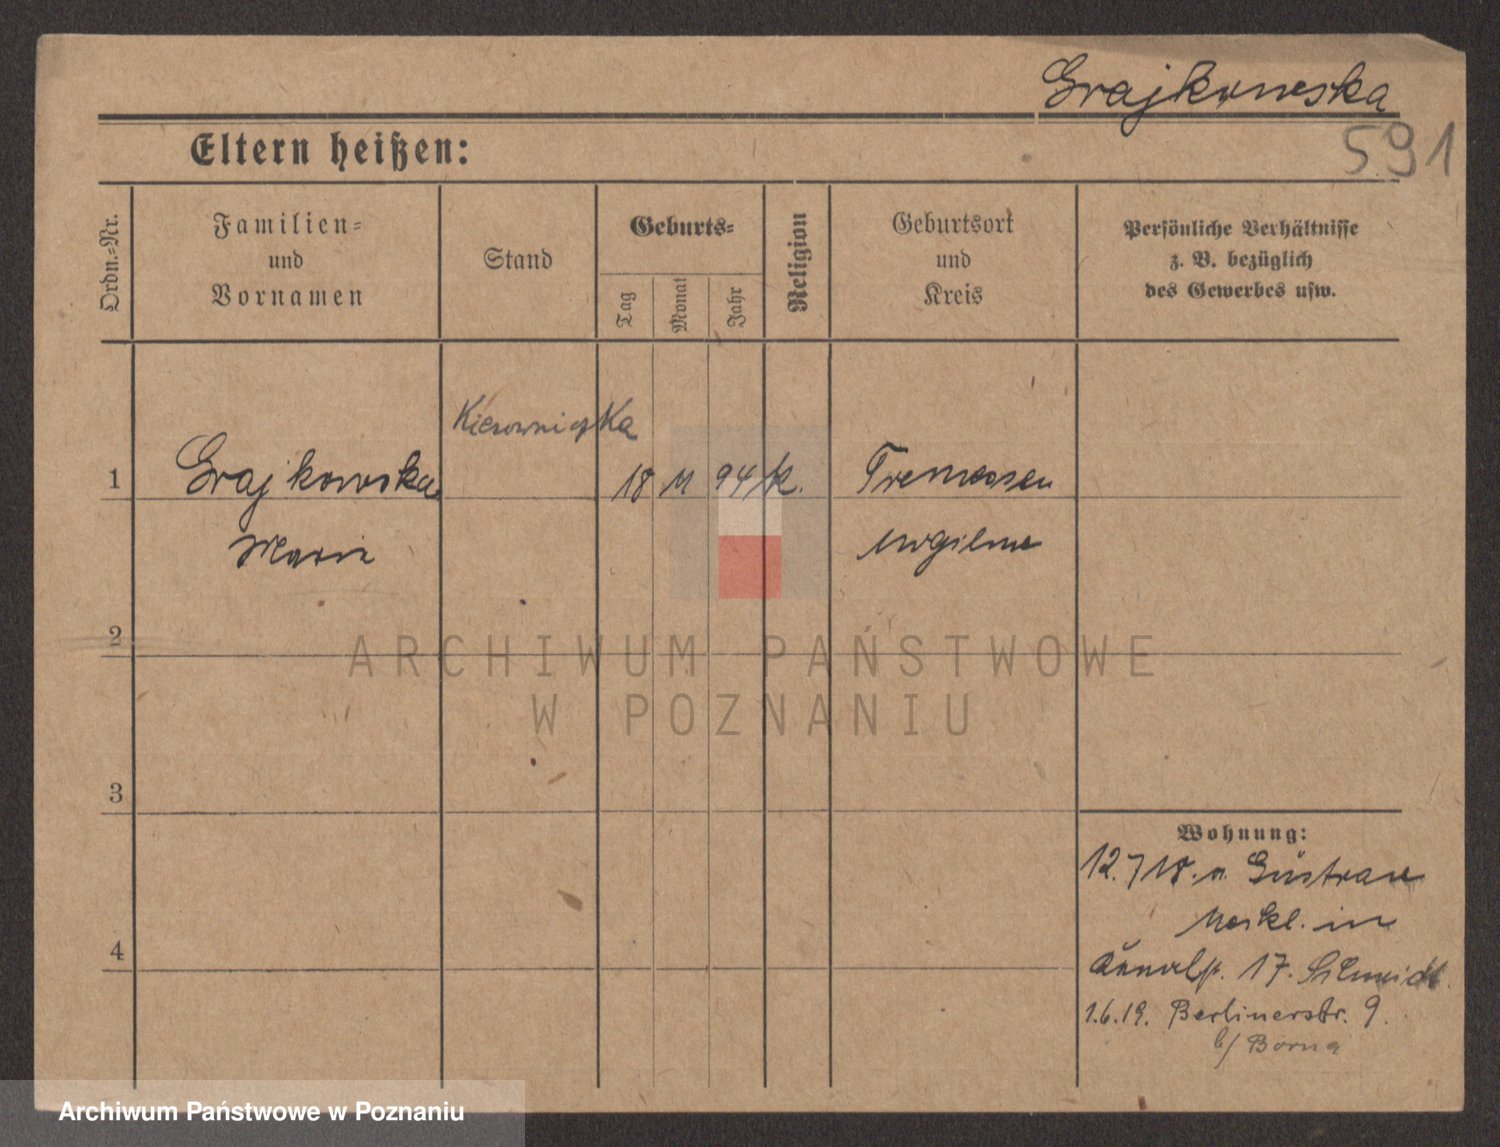 Grajkowska
591
Eltern heißen:
Ordn.-Nr.
Familien-
und
Vornamen
Stand
Geburts-
Tag
Monat
Jahr
Religion
Geburtsort
und
Kreis
Persönliche Verhältnisse
z. B. bezüglich
des Gewerbes usw.
Kierowniczka
1 Grajkowska 18 11 94 k. Tremessen
Marie Mogilno
2
ARCHIWUM PAŃSTWOWE
W POZNANIU
3
Wohnung:
12.7 18. n. Güstrow
Meckl. in
4
17. Schmidt.
1.6.19. Berlinerstr. 9.
b/ Borna
Archiwum Państwowe w Poznaniu